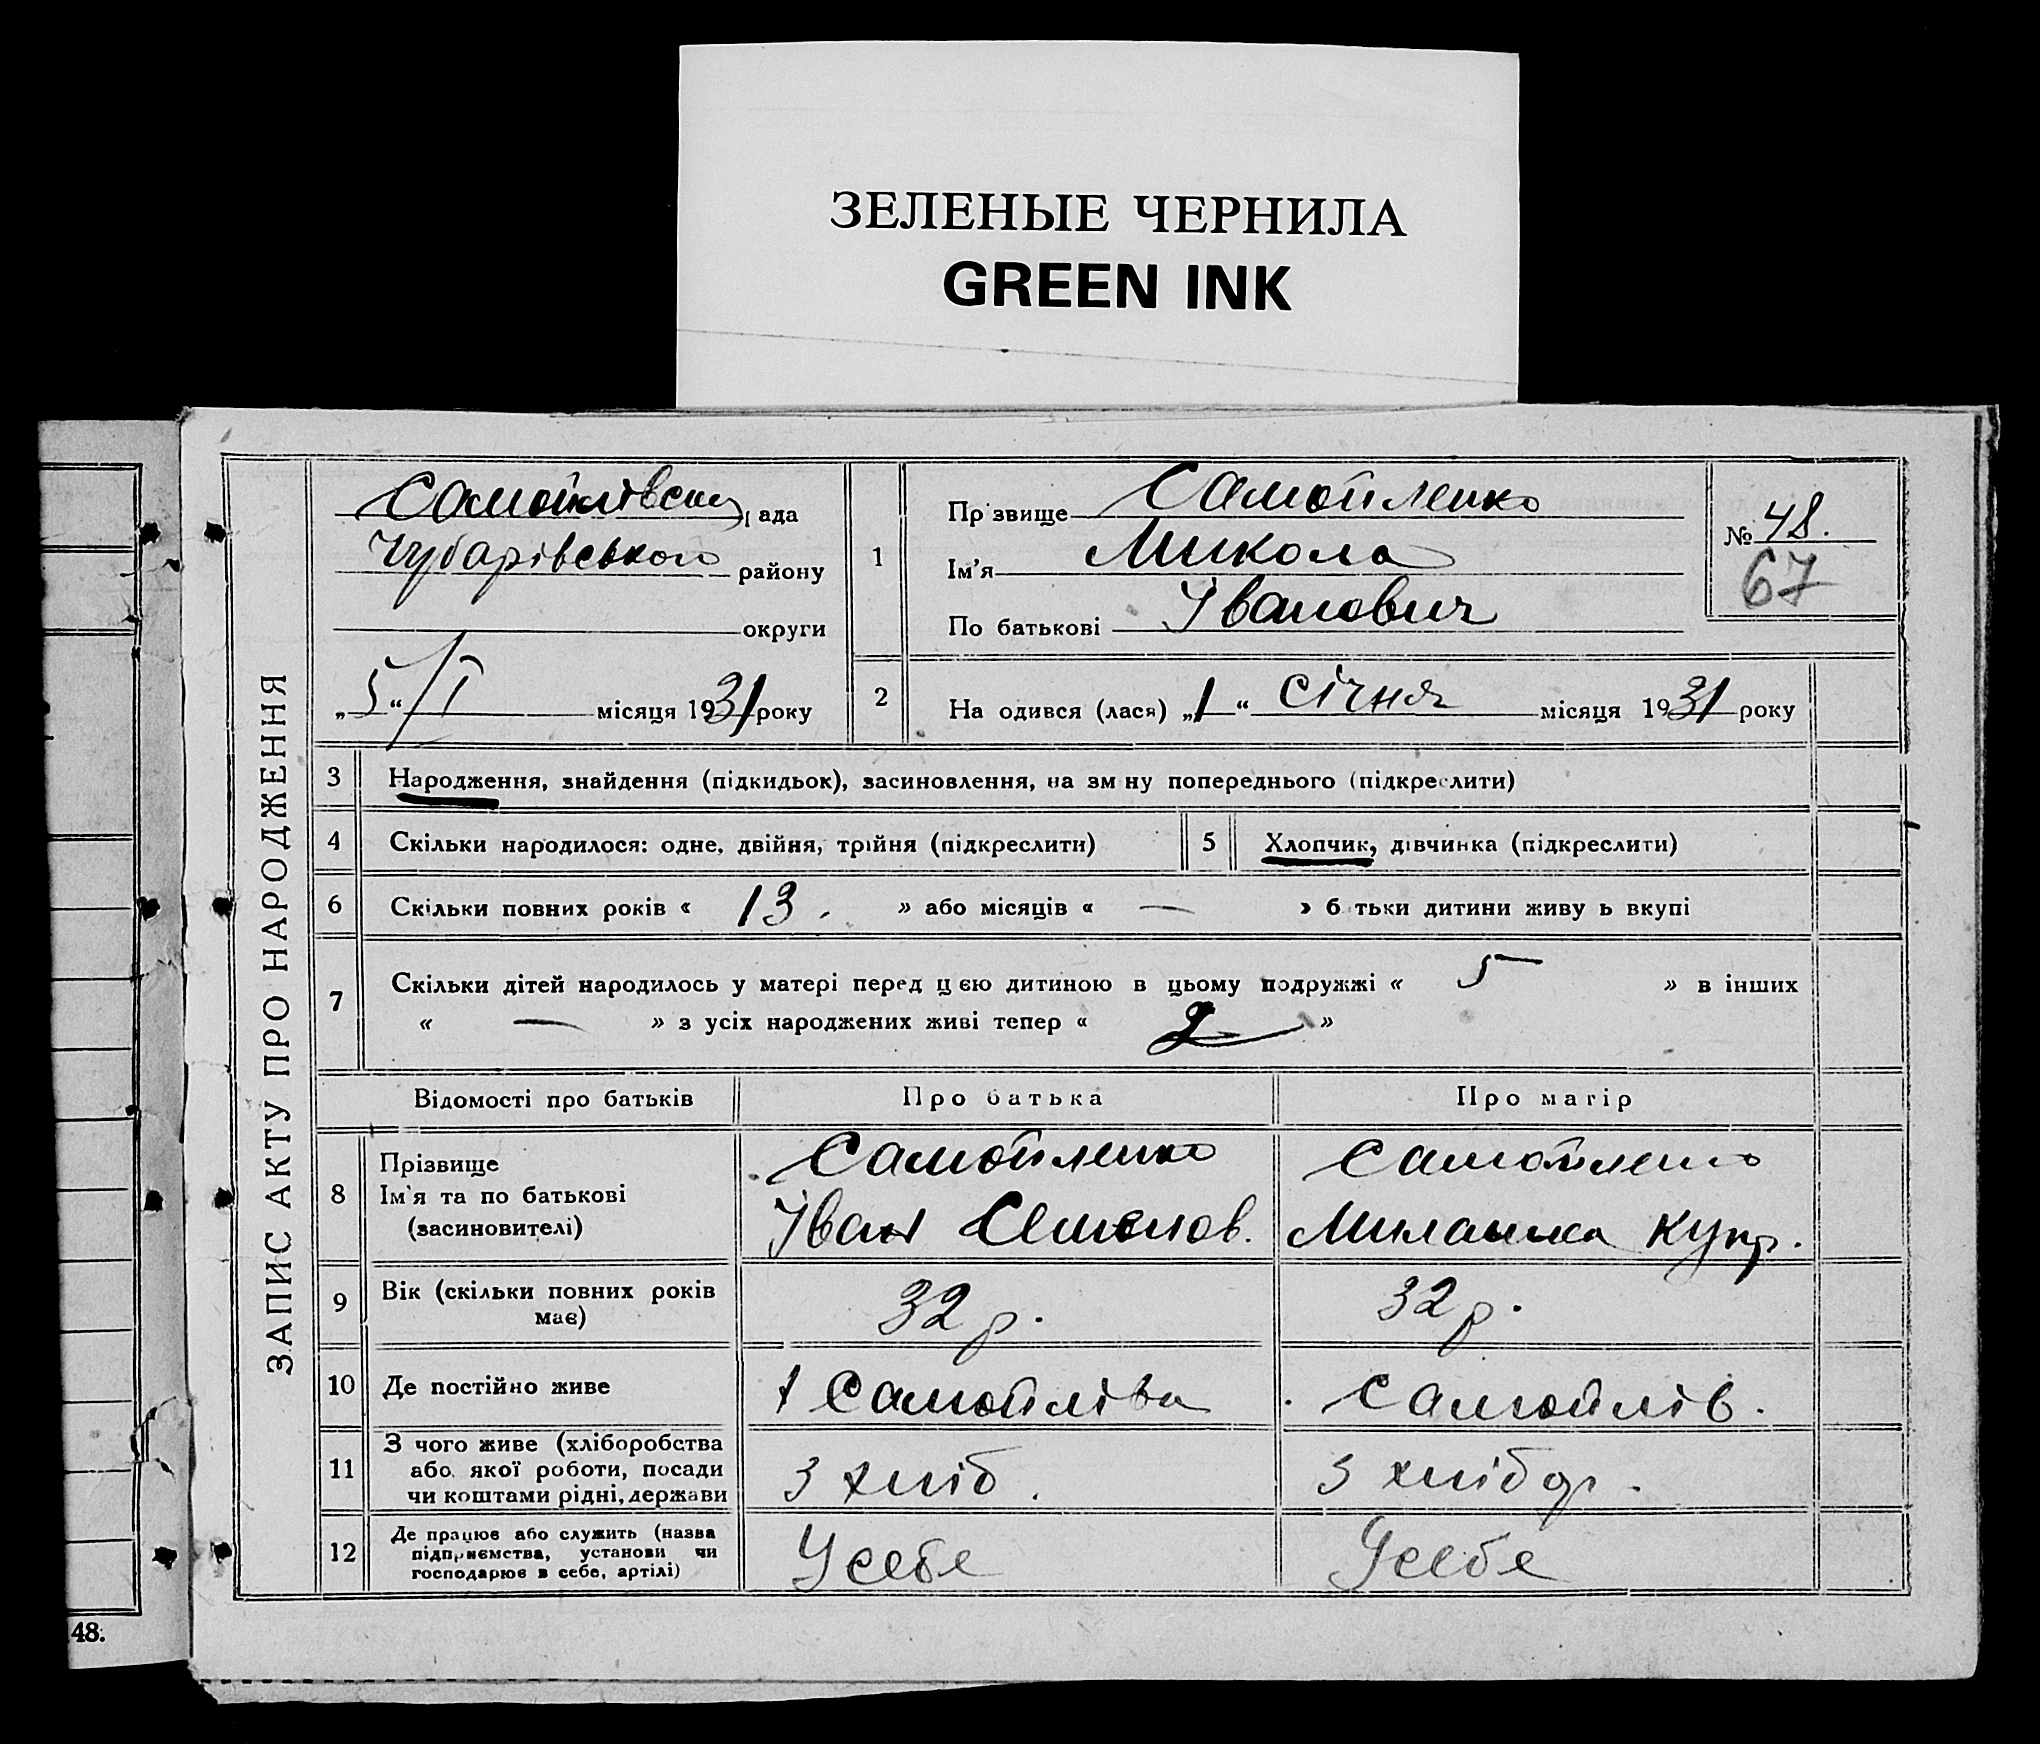 ЗЕЛЕНЫЕ ЧЕРНИЛА
GREEN INK
ЗАПИС АКТУ ПРО НАРОДЖЕННЯ
Самойлівська рада
Чубарівського району
округи
„5“ /I місяця 1931 року
1
Прізвище Самойленко
Ім'я Микола
По батькові Іванович
№ 48.
67
2
Народився (лася) „1“ Січня місяця 1931 року
3 Народження, знайдення (підкидьок), засиновлення, на зміну попереднього (підкреслити)
4 Скільки народилося: одне, двійня, трійня (підкреслити)
5 Хлопчик, дівчинка (підкреслити)
6 Скільки повних років « 13. » або місяців « — » батьки дитини живуть вкупі
7 Скільки дітей народилось у матері перед цією дитиною в цьому подружжі « 5 » в інших
« — » з усіх народжених живі тепер « 2 »
Відомості про батьків Про батька Про матір
8 Прізвище
Ім'я та по батькові
(засиновителі)
Самойленко
Іван Семенов.
Самойленко
Миланка Купр.
9 Вік (скільки повних років
має)
32 р.
32 р.
10 Де постійно живе
х Самойлівка
Самойлів.
11 З чого живе (хліборобства
або якої роботи, посади
чи коштами рідні, держави
З хліб.
З хлібор.
12 Де працює або служить (назва
підприємства, установи чи
господарює в себе, артілі)
У себе
У себе
48.